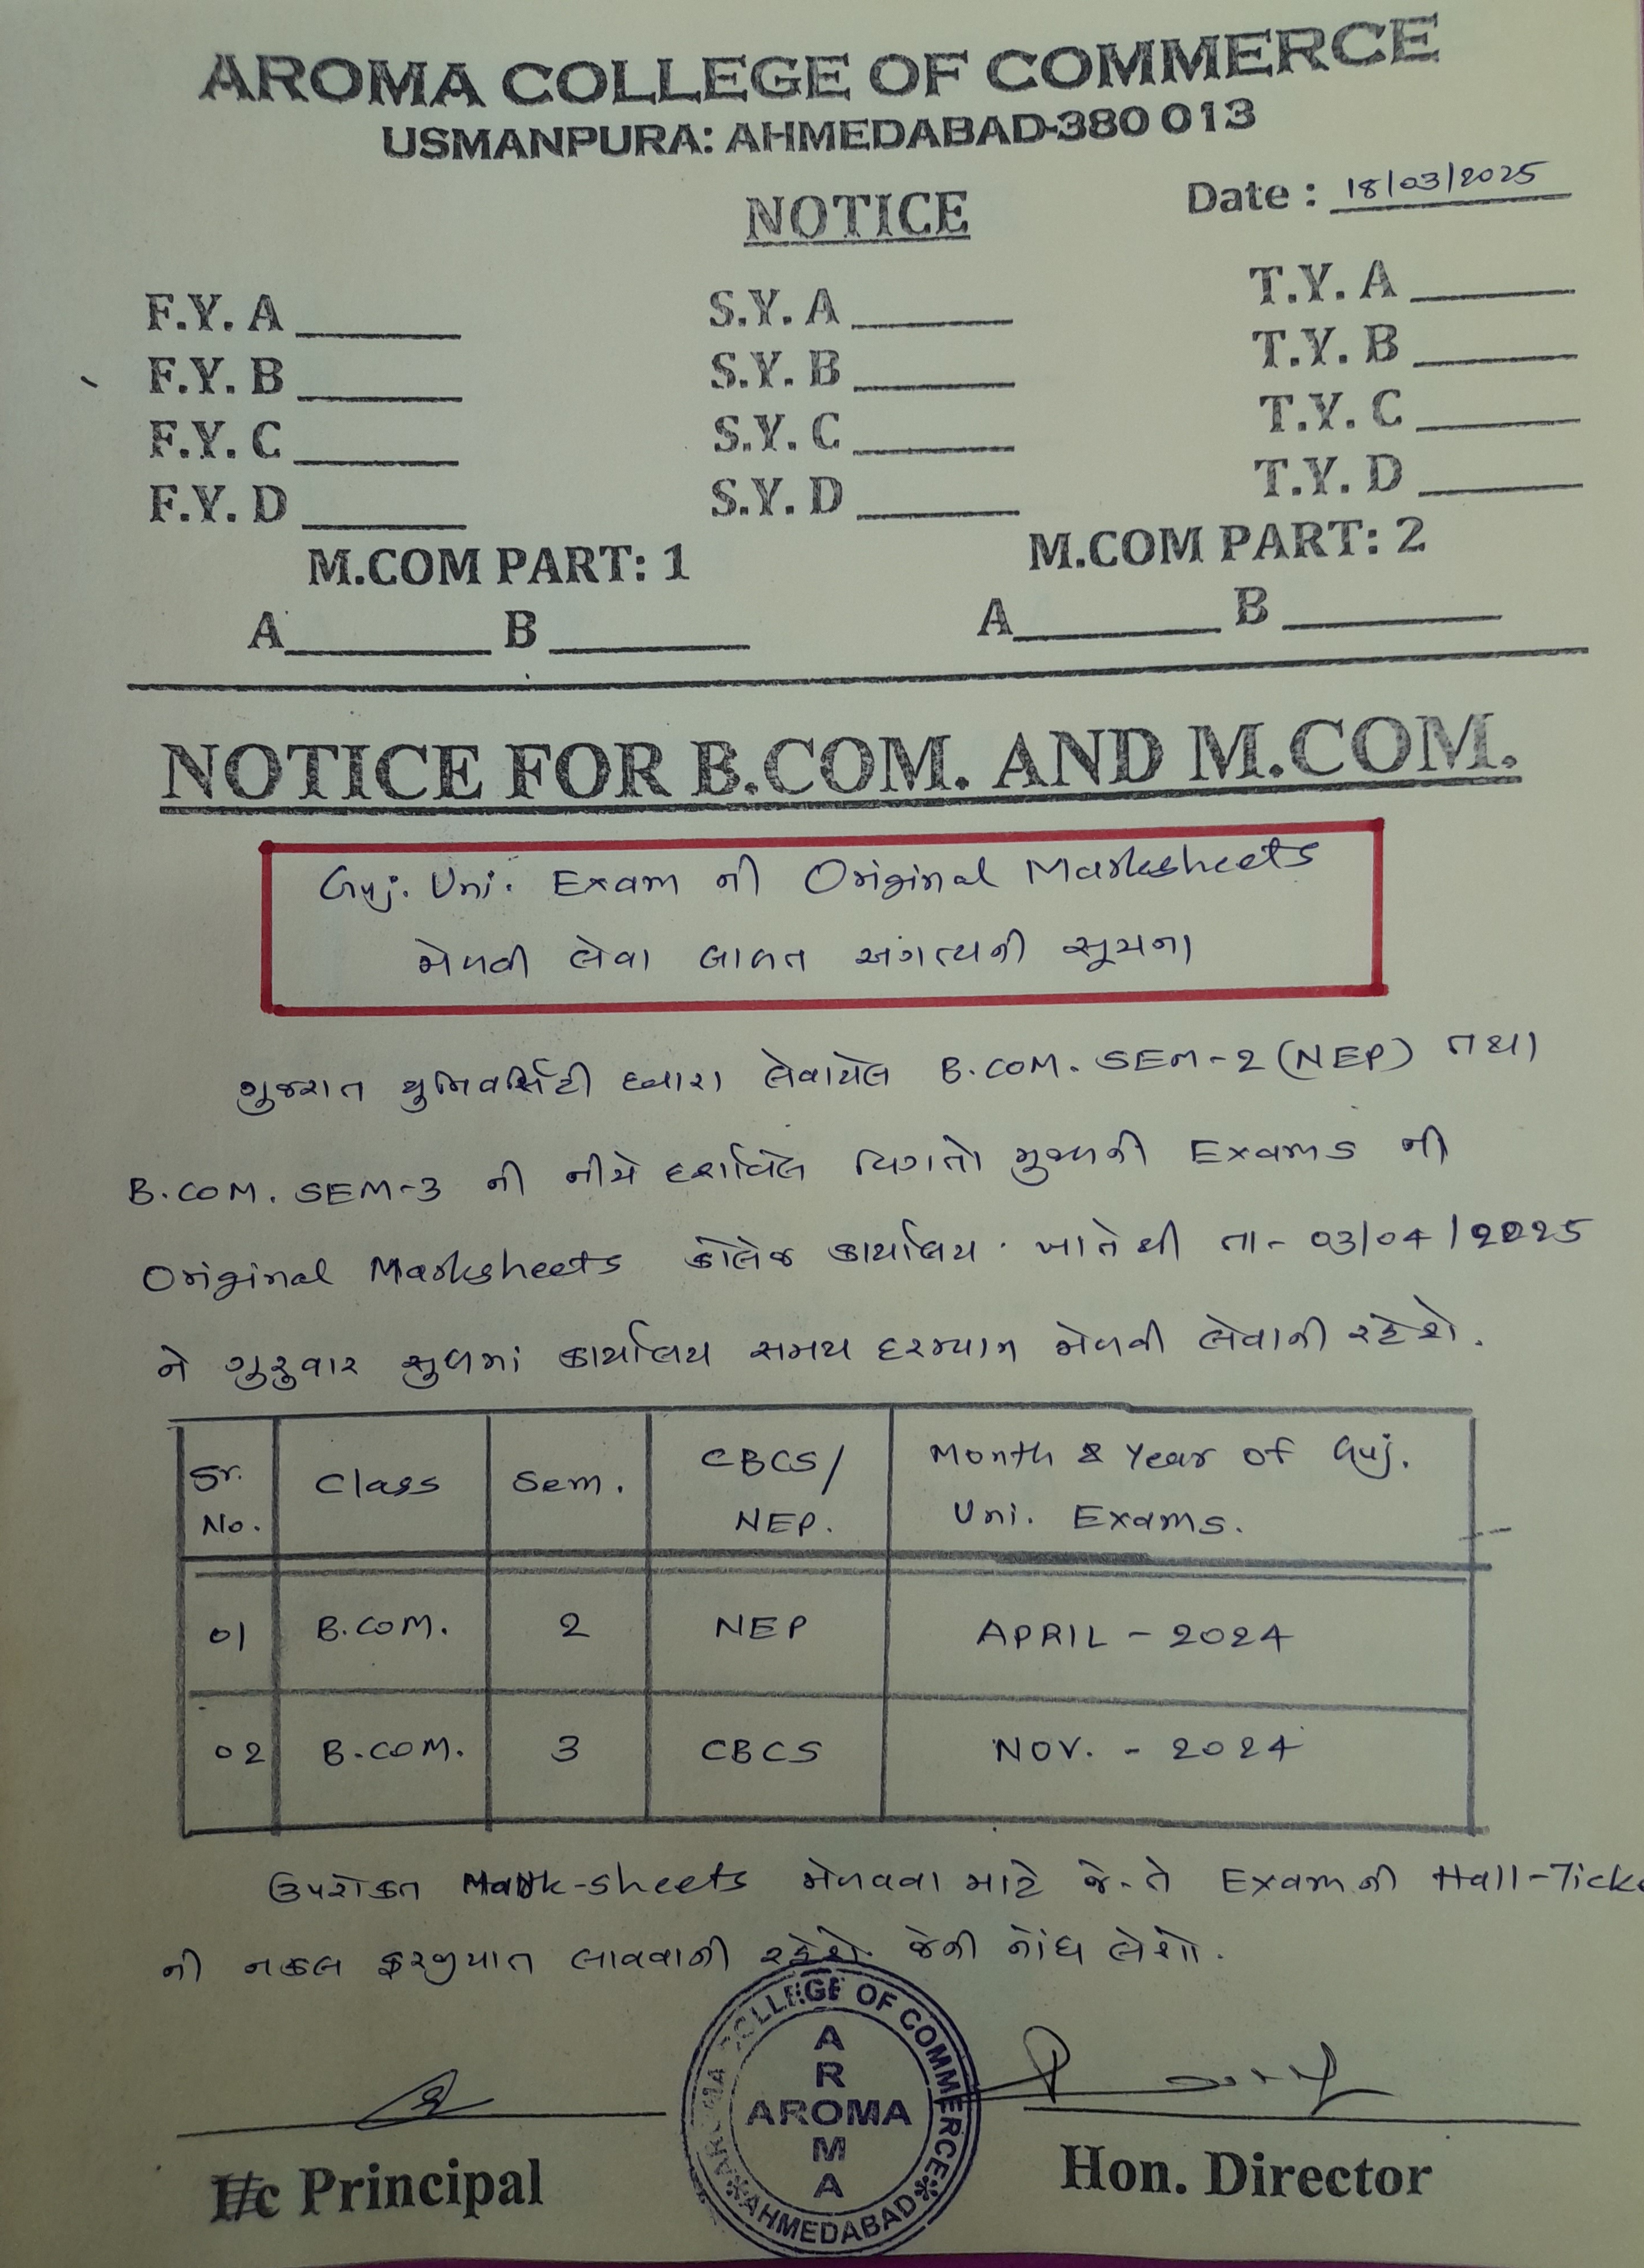 AROMA COLLEGE OF COMMERCE
USMANPURA: AHMEDABAD-380 013
NOTICE
Date : 18/03/2025
F.Y. A ______ S.Y. A ______ T.Y. A ______
F.Y. B ______ S.Y. B ______ T.Y. B ______
F.Y. C ______ S.Y. C ______ T.Y. C ______
F.Y. D ______ S.Y. D ______ T.Y. D ______
M.COM PART: 1 M.COM PART: 2
A______ B______ A______ B______
NOTICE FOR B.COM. AND M.COM.
Guj. Uni. Exam ની Original Marksheets
મેળવી લેવા બાબત અગત્યની સૂચના
ગુજરાત યુનિવર્સિટી દ્વારા લેવાયેલ B.COM. SEM-2 (NEP) તથા
B.COM. SEM-3 ની નીચે દર્શાવેલ વિગતો મુજબની Exams ની
Original Marksheets કોલેજ કાર્યાલય ખાતેથી તા- 03/04/2025
ને ગુરુવાર સુધીમાં કાર્યાલય સમય દરમ્યાન મેળવી લેવાની રહેશે.
Sr. No. Class Sem. CBCS/ NEP. Month & Year of Guj. Uni. Exams.
01 B.COM. 2 NEP APRIL - 2024
02 B.COM. 3 CBCS NOV. - 2024
ઉપરોક્ત Mark-sheets મેળવવા માટે જે-તે Exam ની Hall-Ticke
ની નકલ ફરજીયાત લાવવાની રહેશે. જેની નોંધ લેશો.
AROMA COLLEGE OF COMMERCE
AROMA
AROMA
AHMEDABAD
I/c Principal
Hon. Director